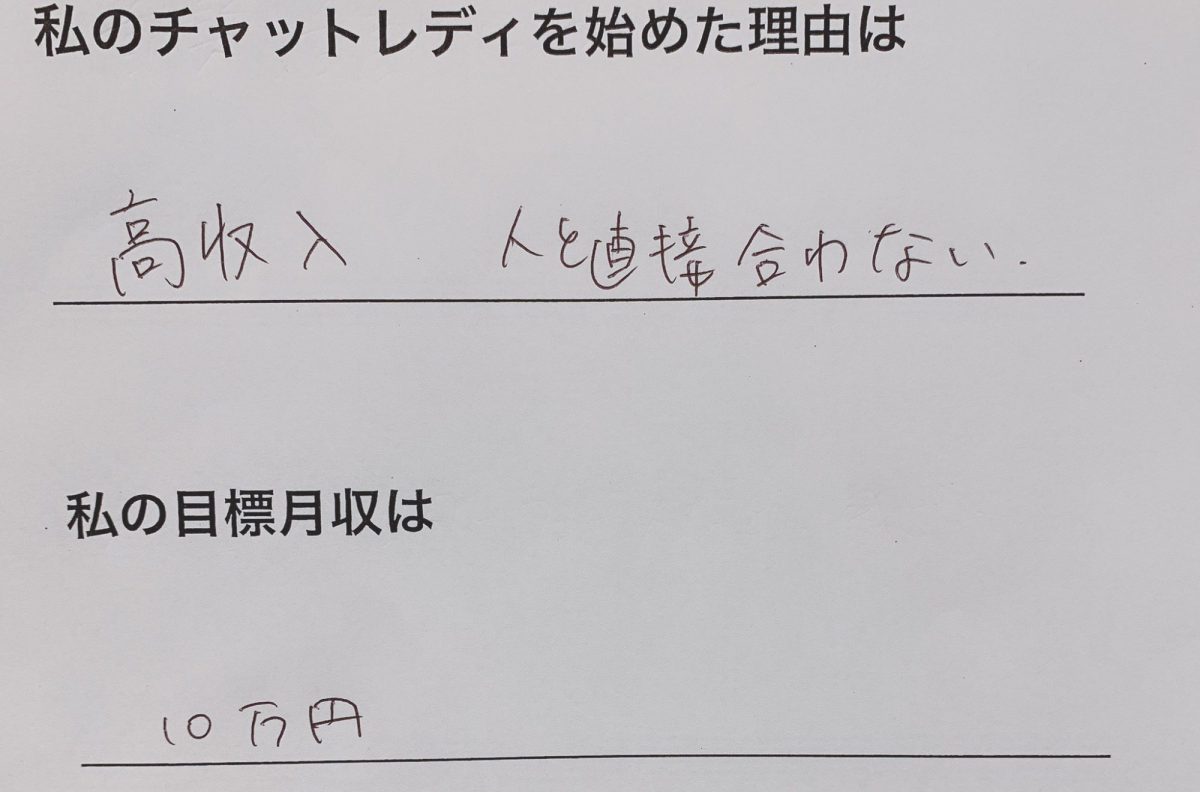 私のチャットレディを始めた理由は
高収入　人と直接合わない.
私の目標月収は
10万円